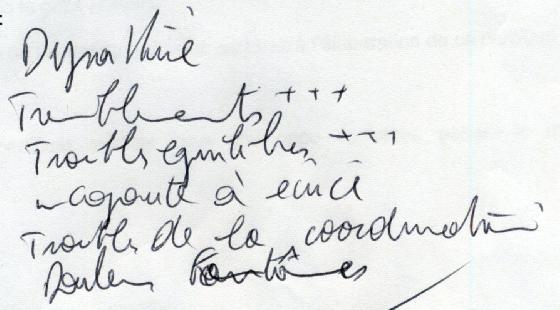 Dysarthrie
Tremblements +++
Troubles equilibres +++
incapacité à écrire
Troubles de la coordination
Douleurs Fantômes